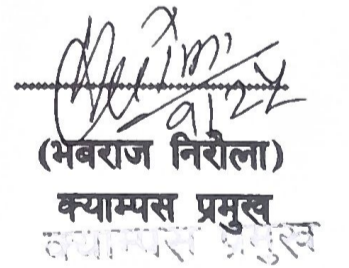 ९/२५
(भबराज निरौला)
क्याम्पस प्रमुख
क्याम्पस प्रमुख